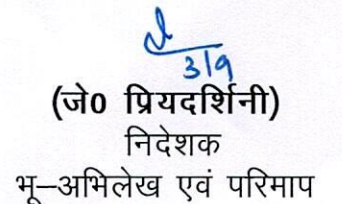 3/9
(जे0 प्रियदर्शिनी)
निदेशक
भू–अभिलेख एवं परिमाप